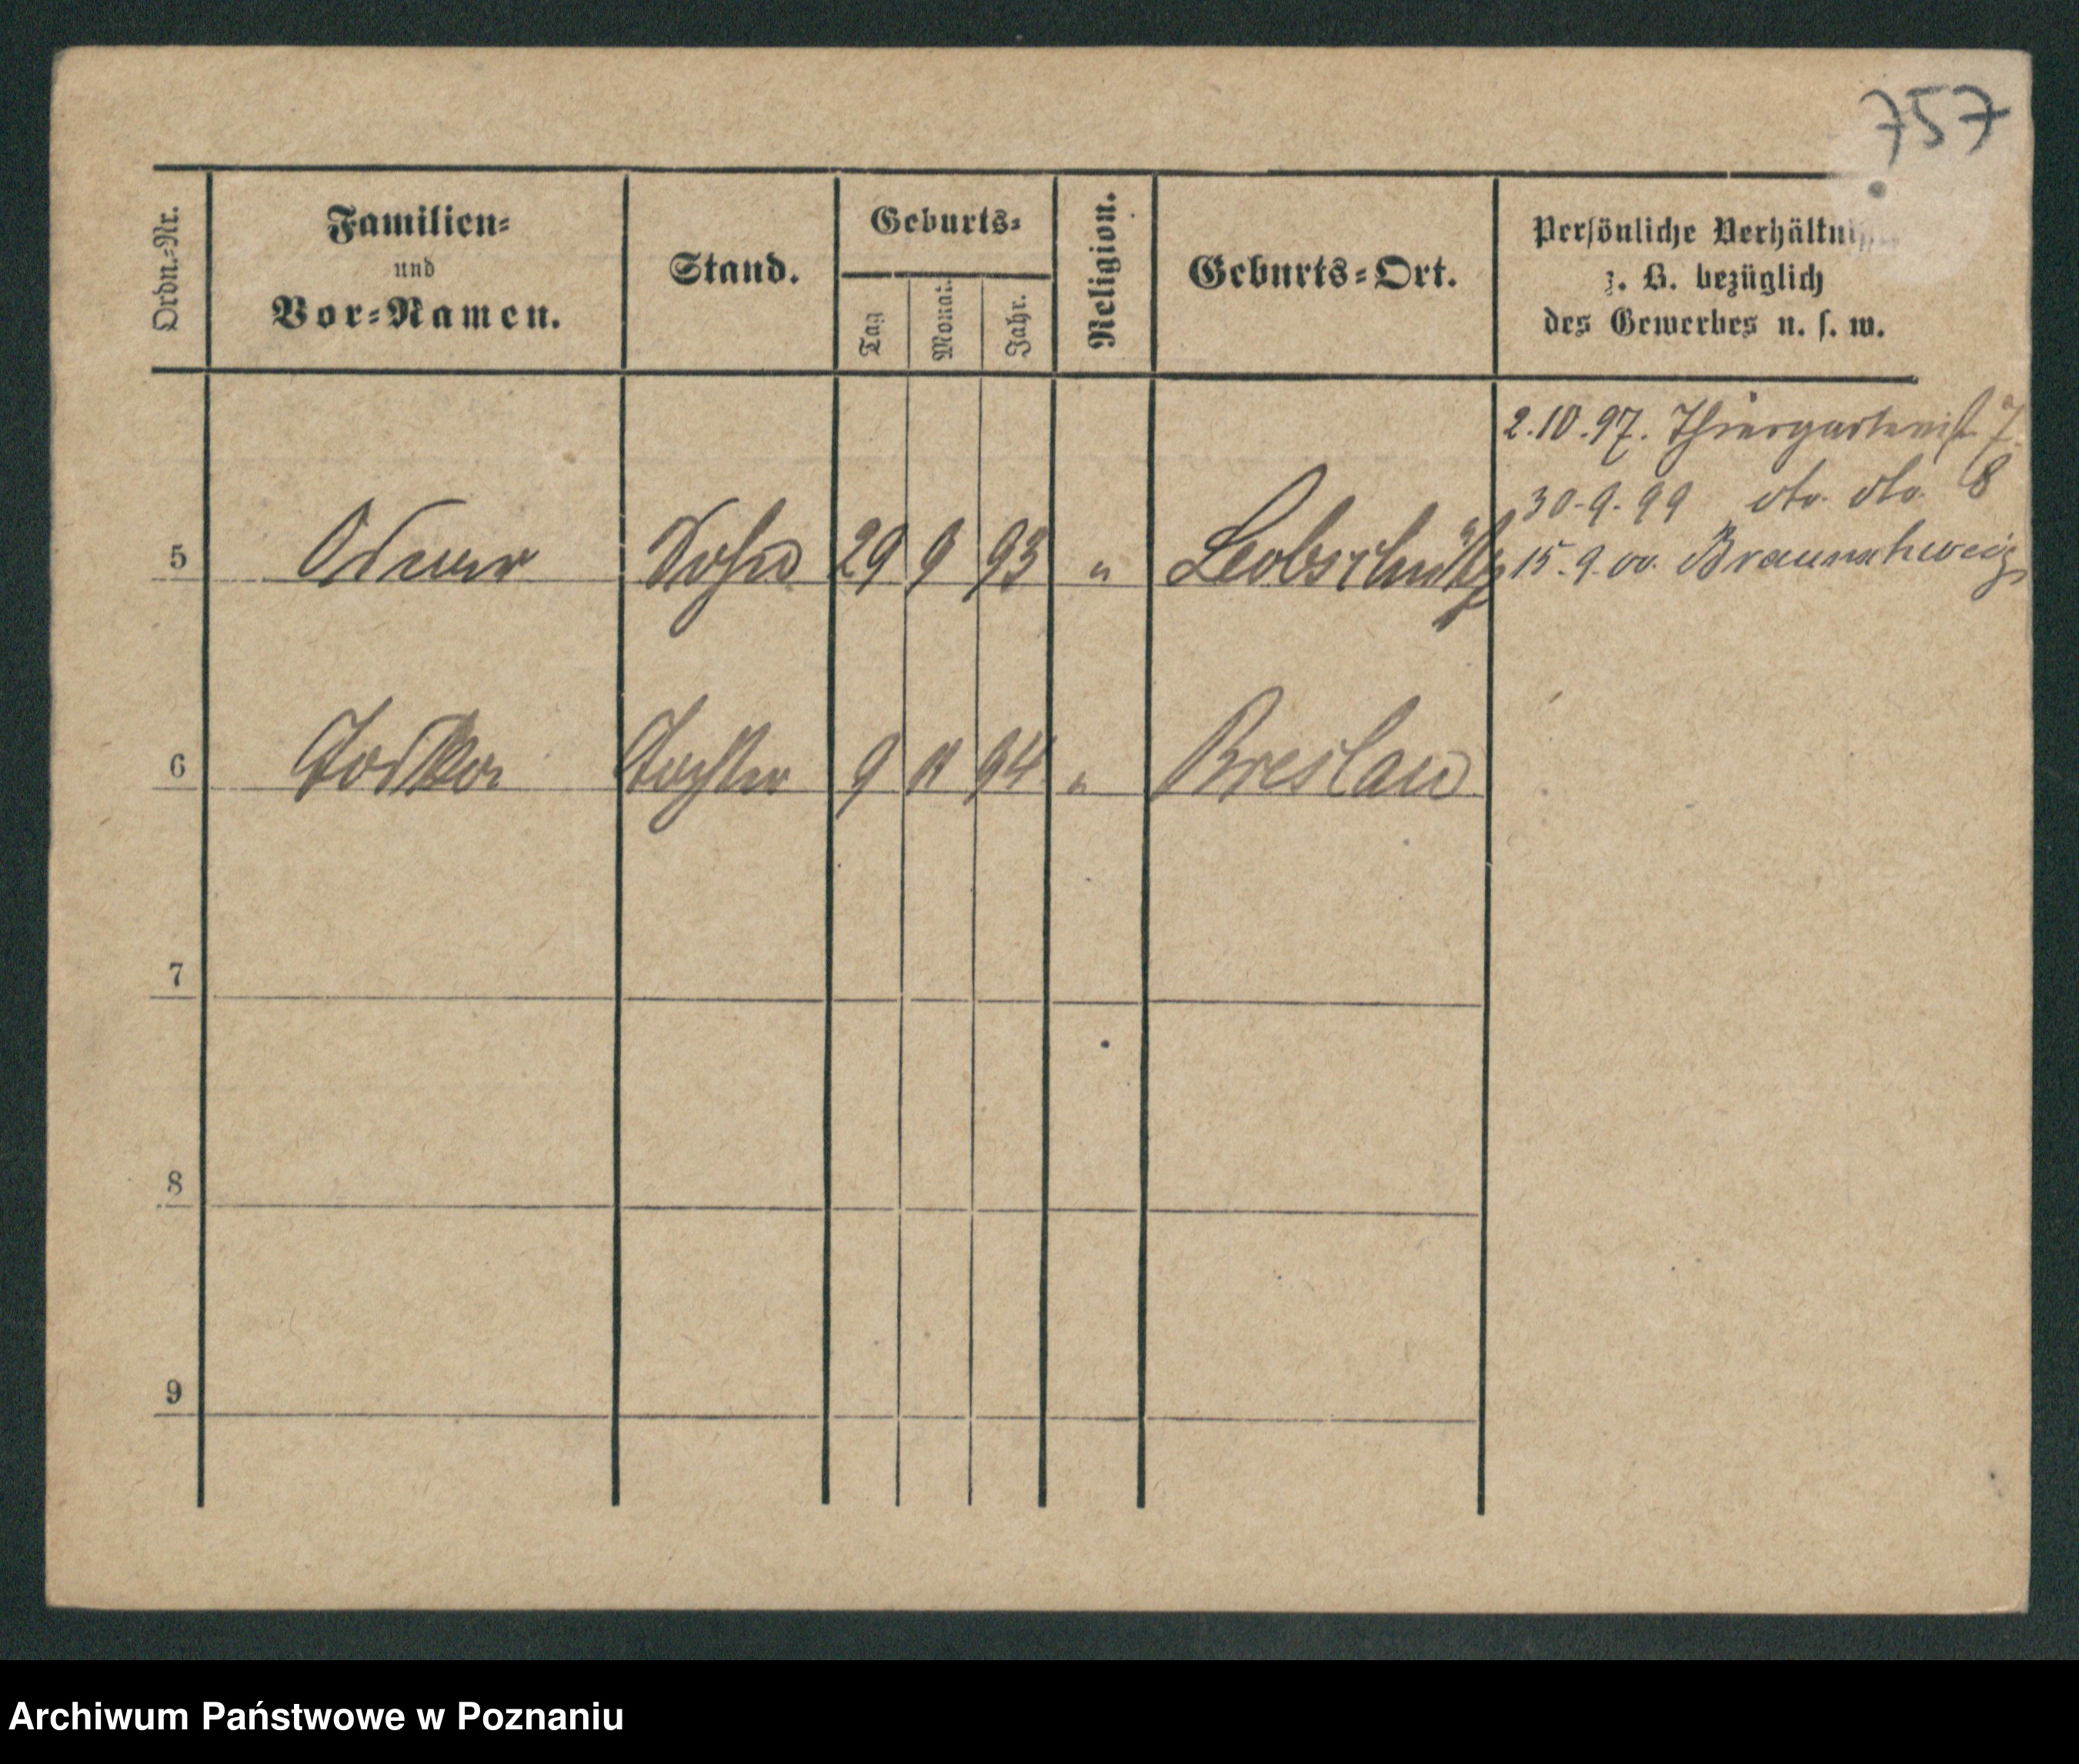 757
Ordn.-Nr.
Familien-
und
Vor-Namen.
Stand.
Geburts-
Tag
Monat.
Jahr.
Religion.
Geburts-Ort.
Persönliche Verhältniss
z. B. bezüglich
des Gewerbes u. s. w.
2.10.97. Thiergartenst 7.
30.9.99 dto. dto. 8
15.9.00. Braunschweig
5 Sohn 29 9 93 " Leobschütz
6 Tochter 9 11 94 " Breslau
7
8
9
Archiwum Państwowe w Poznaniu